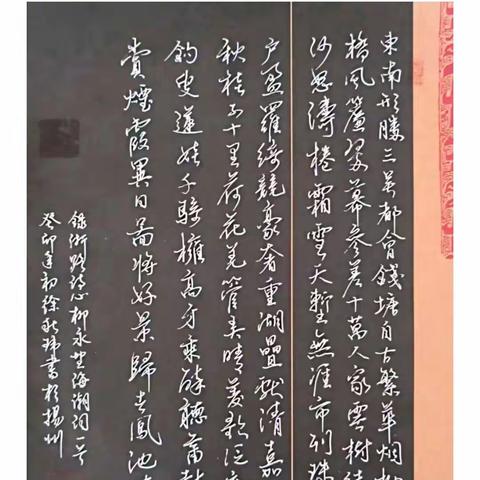 東南形勝三吳都會錢塘自古繁華烟柳
橋風簾翠幕參差十萬人家雲樹繞
沙怒濤捲霜雪天塹無涯市列珠
戶盈羅綺競豪奢重湖疊巘清嘉
秋桂子十里荷花羌管弄晴菱歌泛夜
釣叟蓮娃千騎擁高牙乘醉聽簫鼓
賞煙霞異日圖將好景歸去鳳池
錄 柳永望海潮詞一首
癸卯年初徐秋 書於揚州